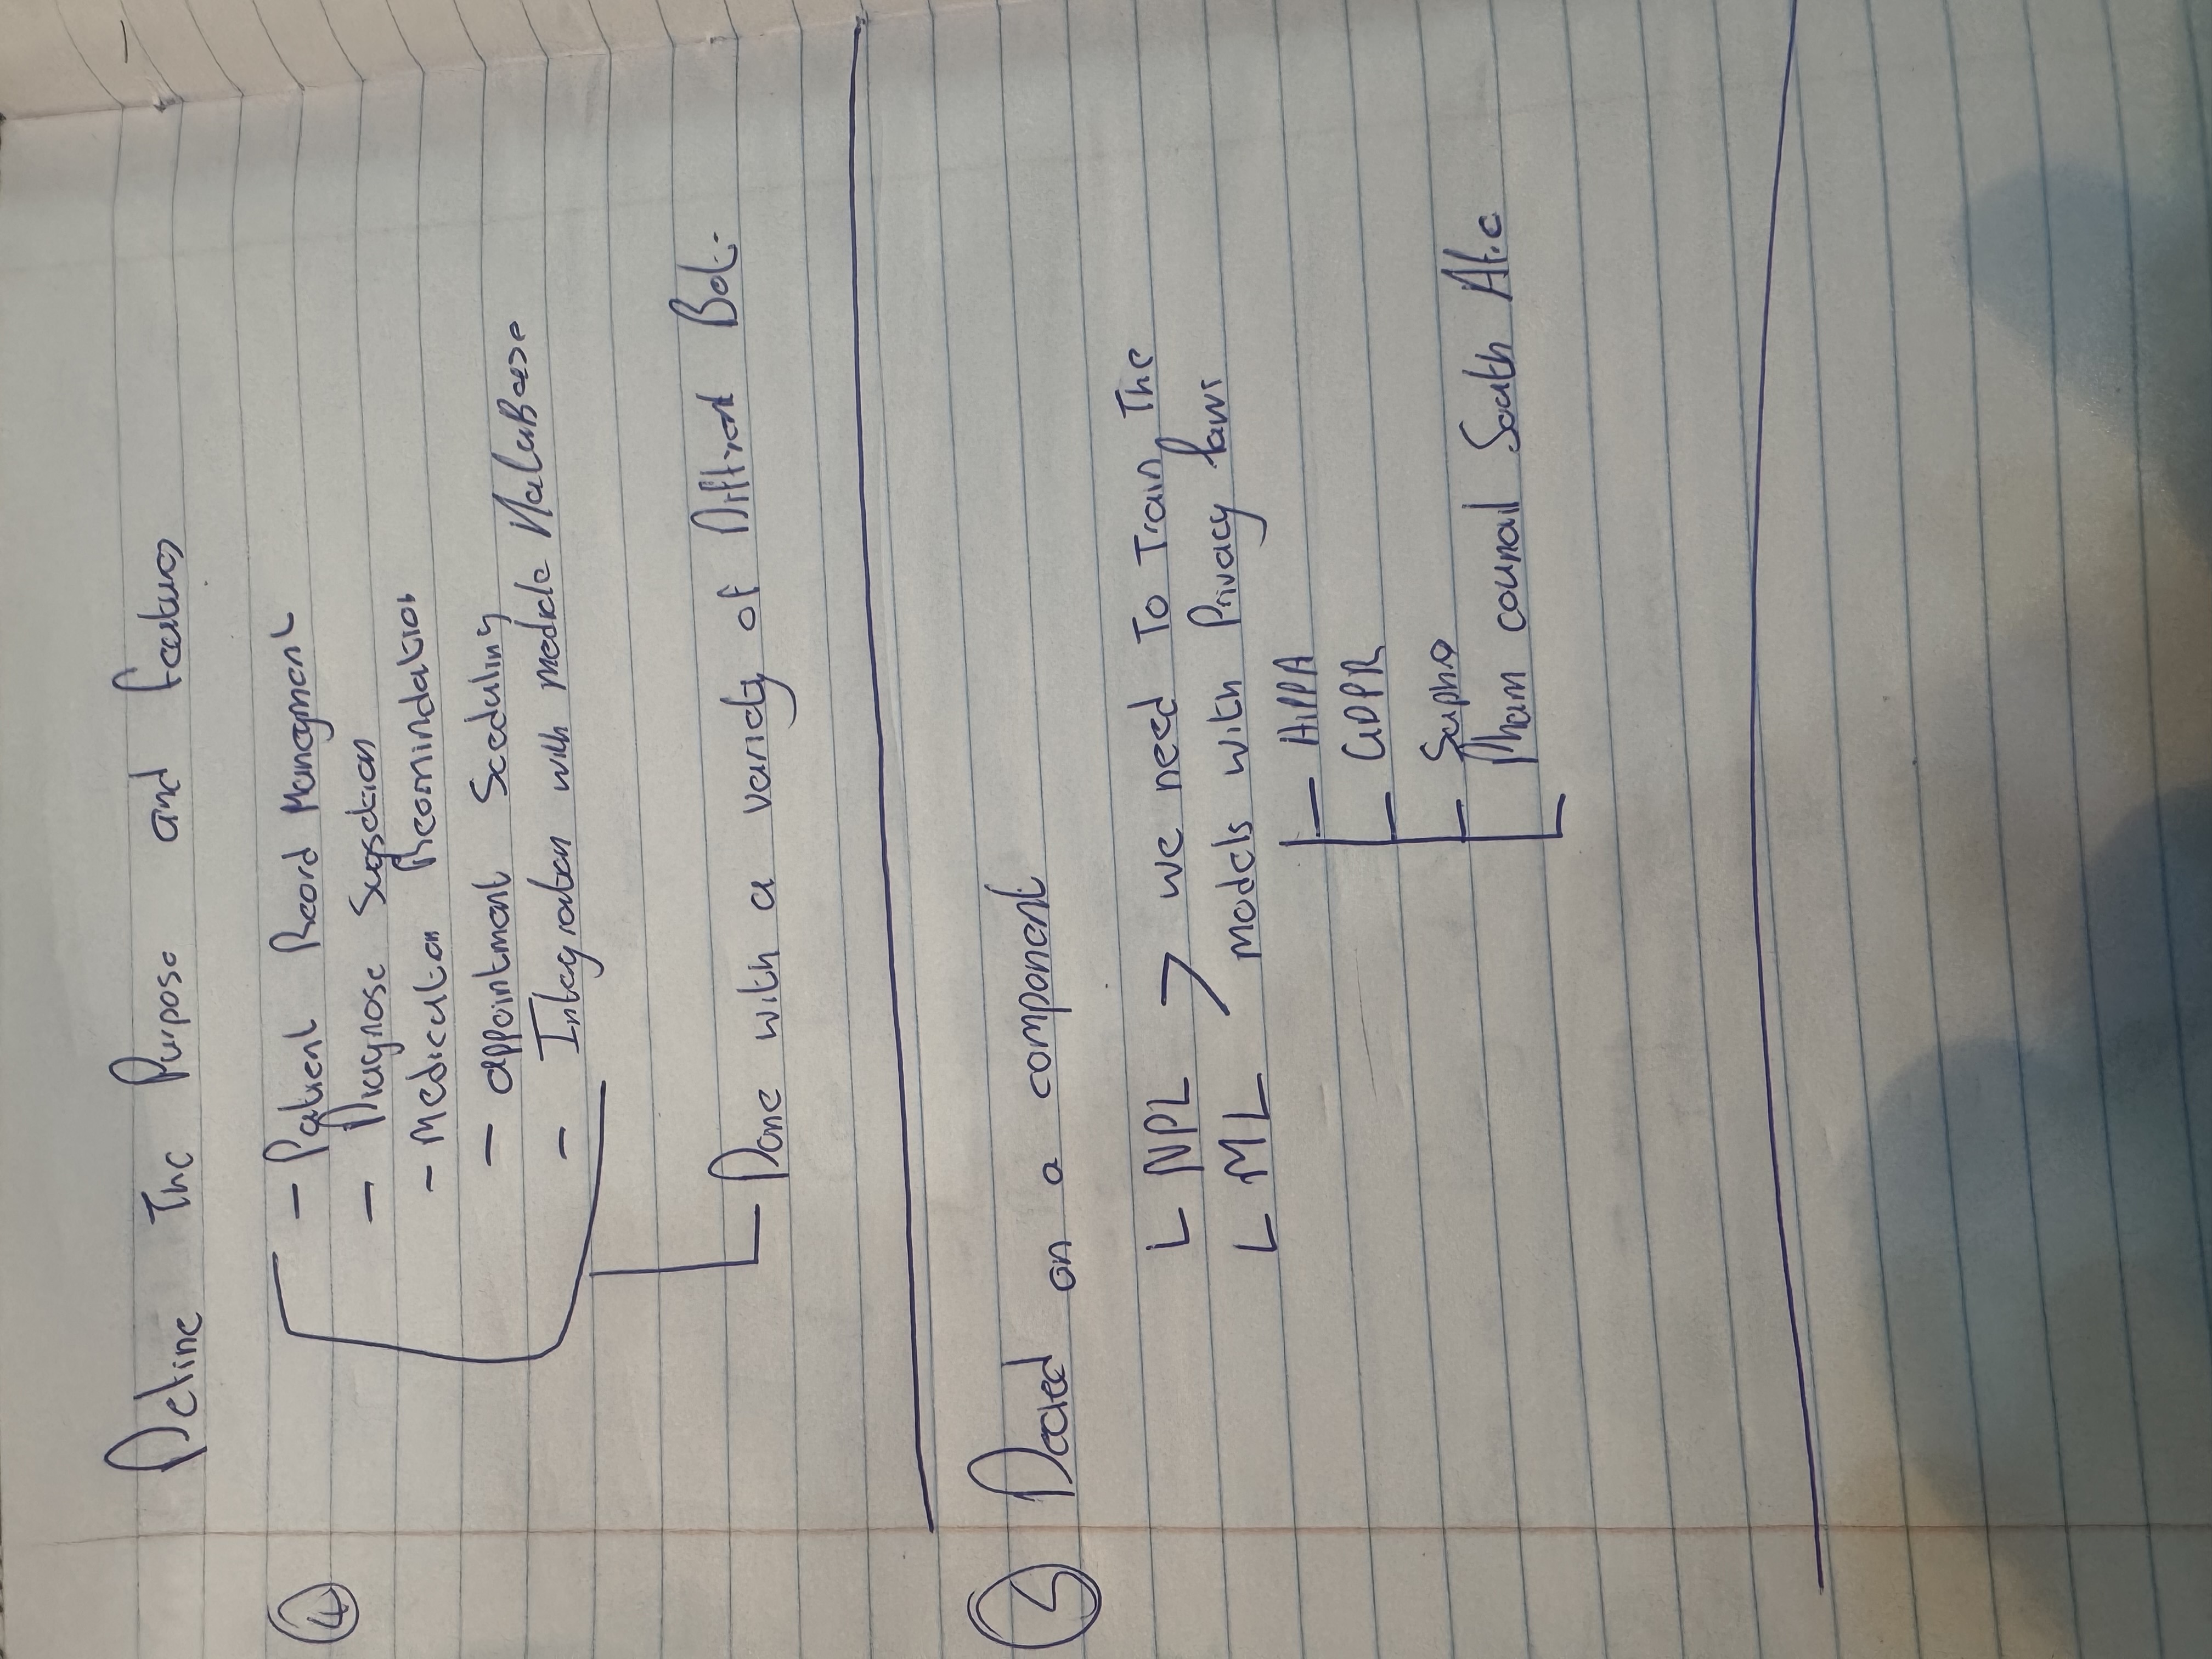 Define The Purpose and features
4
- Patient Record Managment
- Diagnose Sugsetion
- Medication Recomindation
- appointment Sceduling
- Integration with medicle DataBase
Done with a variety of Diffrent Bot.
5 Decied on a component
L NPL > we need To Train The
L ML models with Privacy laws
- HiPPA
- GDPR
- Sapho
Pham council South Afic